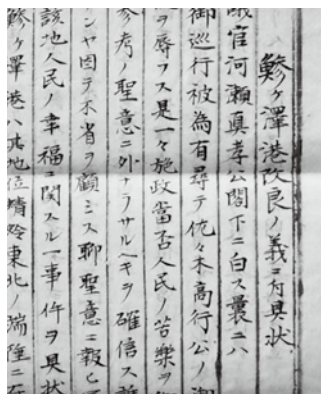 鰺ヶ澤港改良ノ義ニ付具状
官河瀬真孝公閣下ニ白ス曩ニハ
御巡行被為有尋テ佐々木高行公ノ
ヲ辱フス是一々施政當否人民ノ苦樂ヲ
参考ノ聖意ニ外ナラサルヘキヲ確信ス
ンヤ因テ不省ヲ顧ミス聊聖意ニ報
該地人民ノ幸福ニ関スル一事件ヲ具状
鰺ヶ澤港ハ其地位蜻蛉東北ノ端陲ニ在